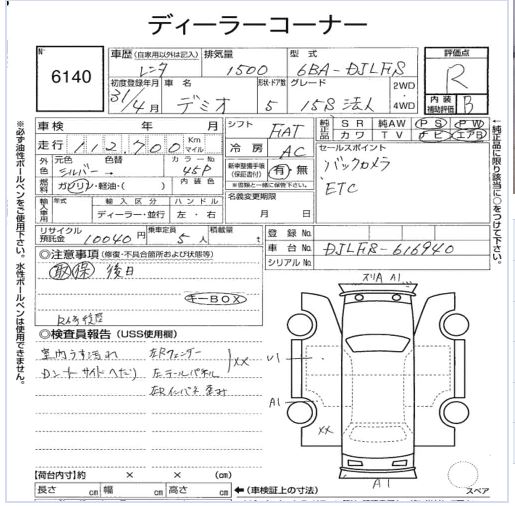 ディーラーコーナー
№ 6140
車歴(自家用以外は記入) レンタ
排気量 1500
型式 6BA-DJLFS
評価点 R
内装補助評価 B
初度登録年月 31/4月
車名 デミオ
形状・ドア数 5
グレード 15S 法人
2WD・4WD
車検 年 月
シフト FAT
純正品 SR 純AW PS PW
カワ TV ナビ エアB
走行 112,700 Km マイル
冷房 AC
セールスポイント
バックカメラ
ETC
外色 元色 シルバー 色替
カラーNo 45P
内装色
新車整備手帳(保証書付) 有・無
※書類と一緒に保管下さい。
燃料 ガソリン・軽油・( )
名義変更期限 月 日
輸入車用 年式 輸入区分 ハンドル
ディーラー・並行 左・右
リサイクル預託金 10040円
乗車定員 5人
積載量 t
登録No.
車台No. DJLFS-616940
シリアルNo.
◎注意事項(修復・不具合箇所および状態等)
取 保 後日
キーBOX
◎検査員報告(USS使用欄)
室内うす汚れ
左Rフェンダー
左テールパネル
XX
スリA A1
U1
A1
XX
A1
スペア
【荷台内寸】約 × × (cm)
長さ cm 幅 cm 高さ cm
←(車検証上の寸法)
※必ず油性ボールペンをご使用下さい。水性ボールペンは使用できません。
←純正品に限り該当に○をつけて下さい。